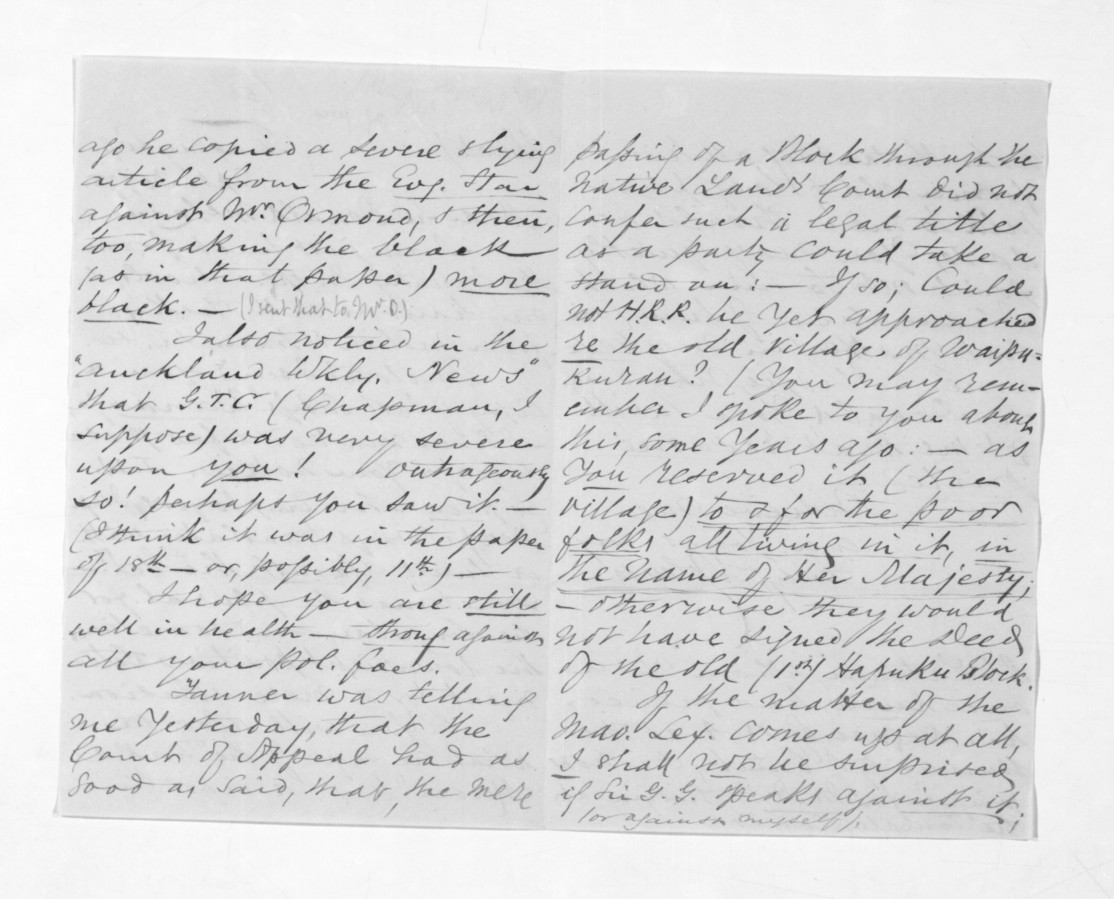 ago he copied a severe slying
article from the Evg. Star
against Mr. Ormond, & then,
too, making the black
(as in that paper) more
black. — (I sent that to Mr. O.)
I also noticed in the
"Auckland Wkly. News"
that G.T.C. (Chapman, I
suppose) was very severe
upon you! outrageously
so! perhaps you saw it. —
(I think it was in the paper
of 18th — or, possibly, 11th) —
I hope you are still
well in health — strong against
all your pol. foes.
Tanner was telling
me yesterday, that the
Court of Appeal had as
good as said, that, the mere
passing of a Block through the
Native Lands Court did not
confer such a legal title
as a party could take a
stand on: — If so; could
not H.R.R. be yet approached
re the old village of Waipu-
kurau? (You may rem-
ember I spoke to you about
this, some years ago: — as
you reserved it (the
village) to & for the poor
folks all living in it, in
the name of Her Majesty;
— otherwise they would
not have signed the deed
of the old (1st) Hapuku Block.
If the matter of the
Mao. Lex. comes up at all,
I shall not be surprised
if Sir G. G. speaks against it;
(or against myself).